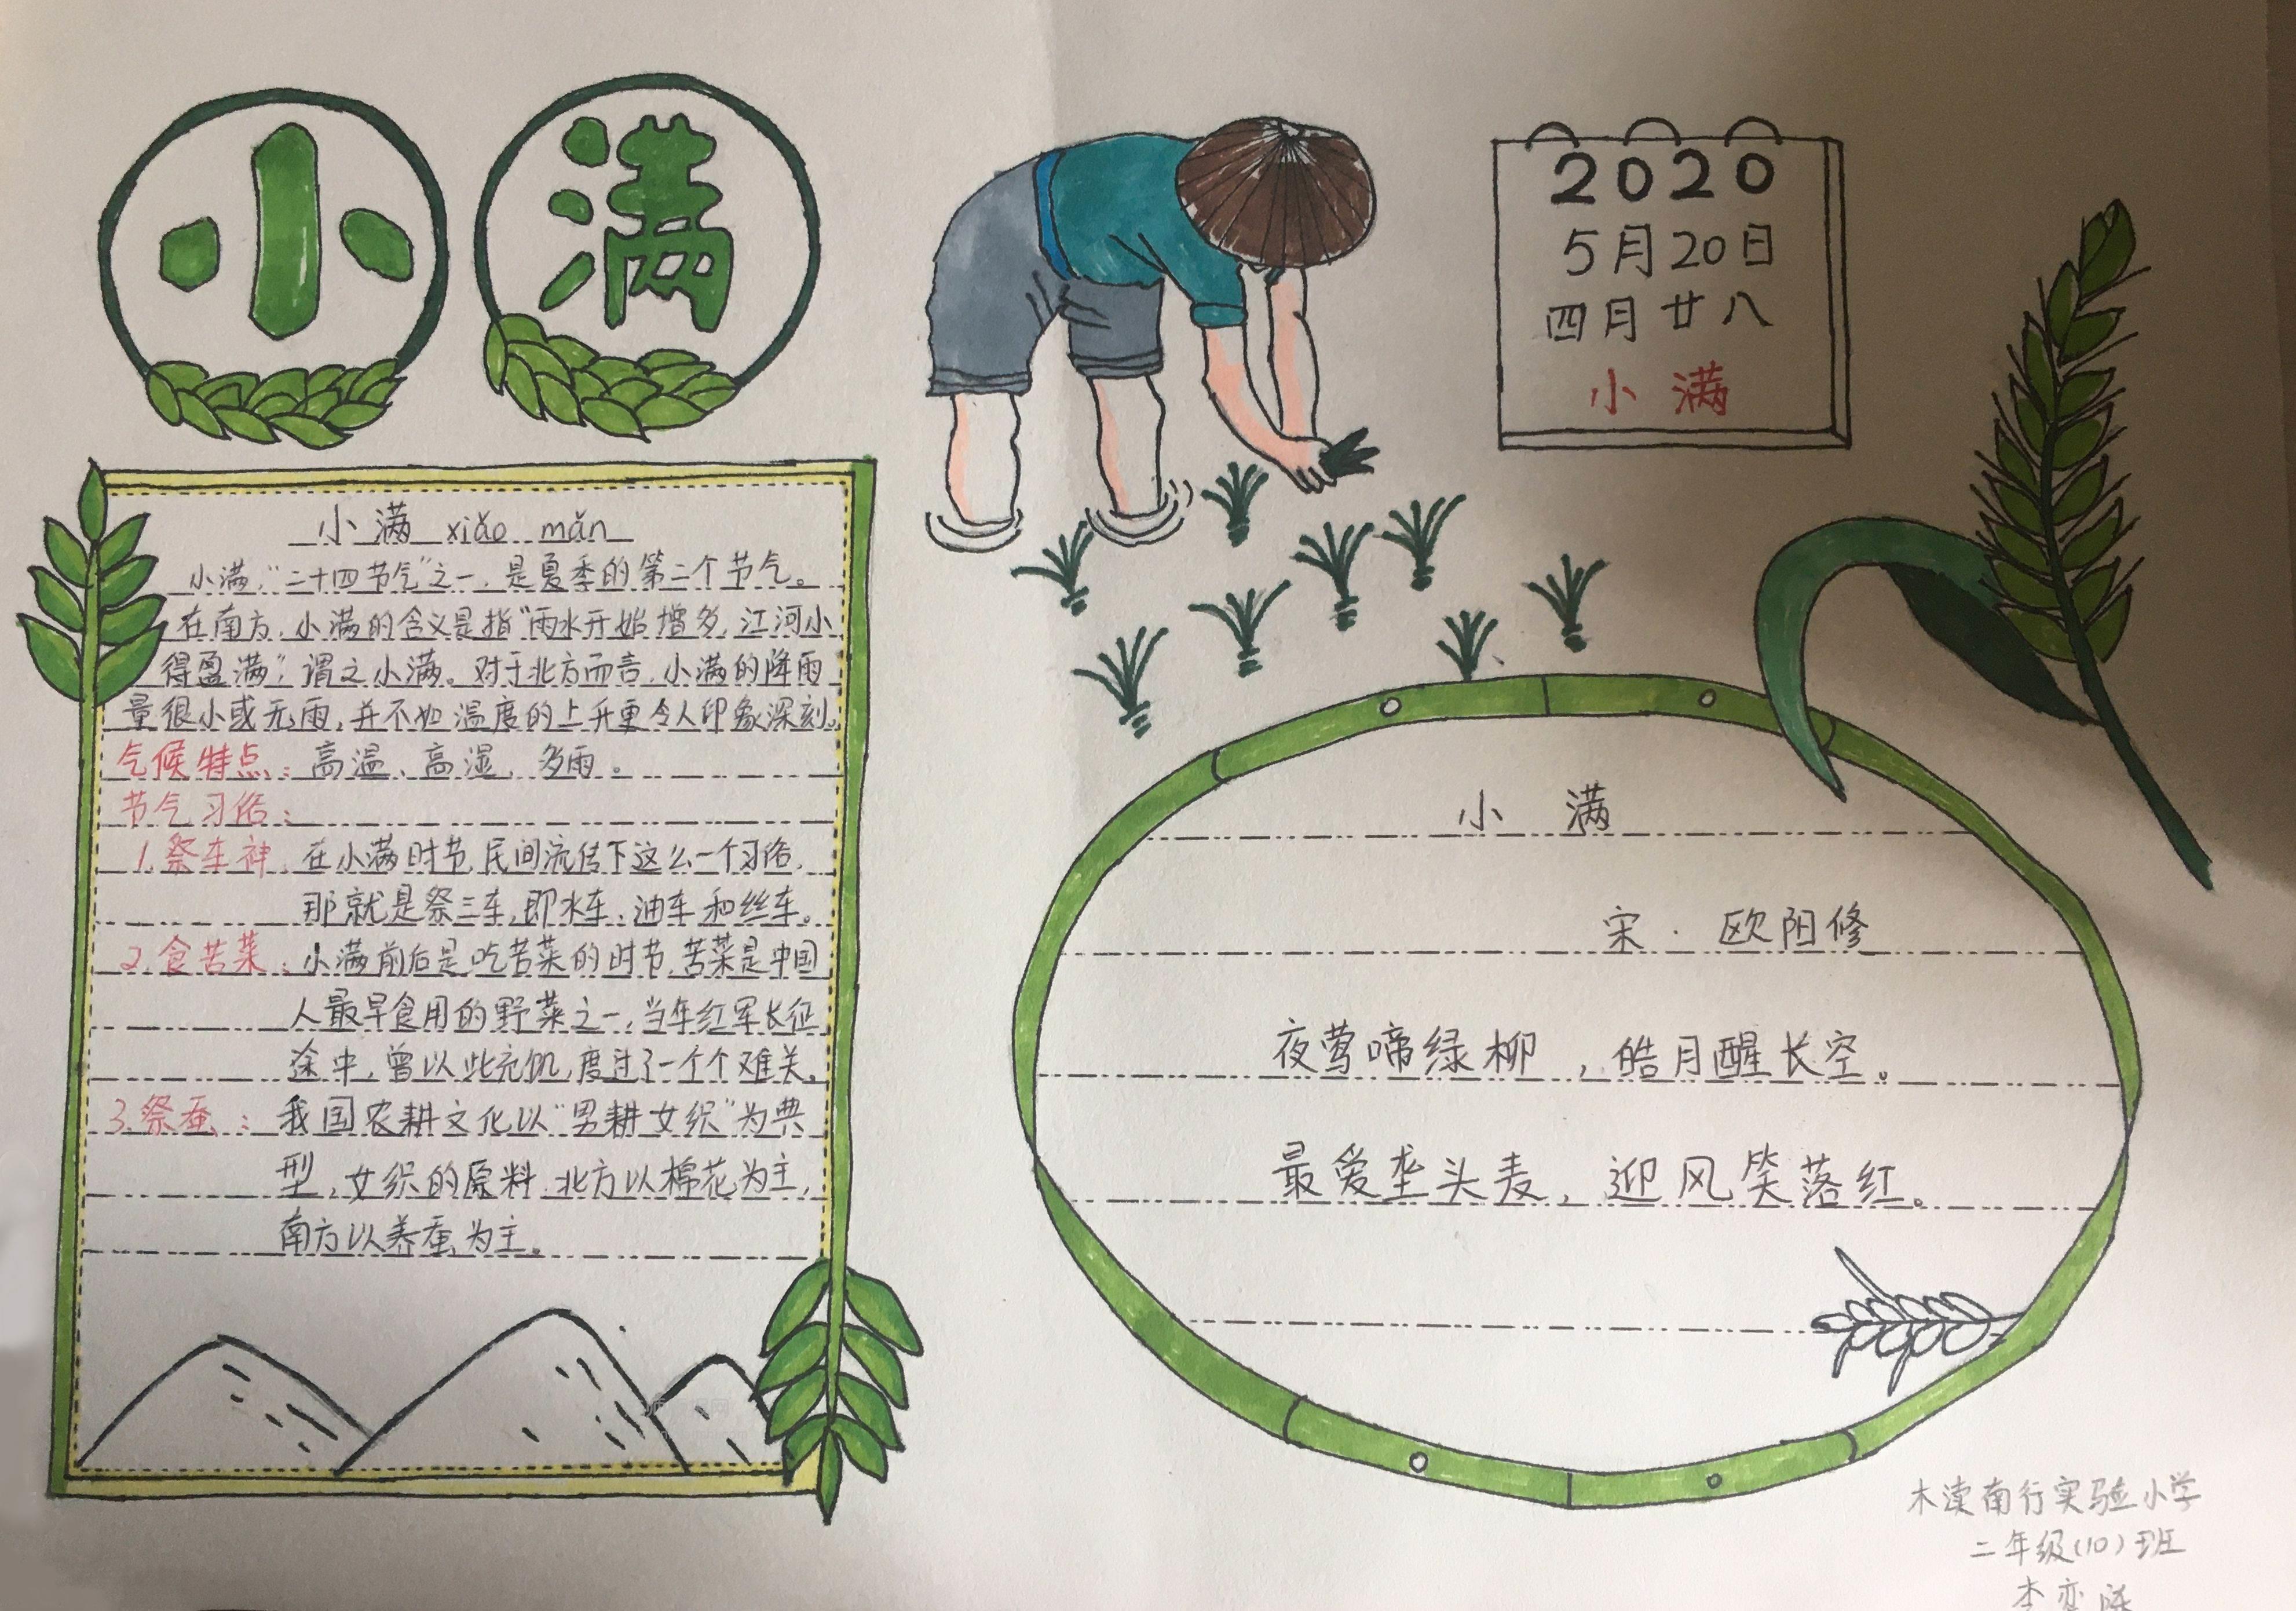 小满
小满 xiǎo mǎn
小满,“二十四节气”之一,是夏季的第二个节气。
在南方,小满的含义是指“雨水开始增多,江河小
得盈满”,谓之小满。对于北方而言,小满的降雨
量很小或无雨,并不如温度的上升更令人印象深刻。
气候特点:高温、高湿、多雨。
节气习俗:
1.祭车神:在小满时节,民间流传下这么一个习俗,
那就是祭三车,即水车、油车和丝车。
2.食苦菜:小满前后是吃苦菜的时节,苦菜是中国
人最早食用的野菜之一,当年红军长征
途中,曾以此充饥,度过了一个个难关。
3.祭蚕:我国农耕文化以“男耕女织”为典
型,女织的原料,北方以棉花为主,
南方以养蚕为主。
2020
5月20日
四月廿八
小满
小 满
宋·欧阳修
夜莺啼绿柳,皓月醒长空。
最爱垄头麦,迎风笑落红。
木渎南行实验小学
二年级(10)班
李